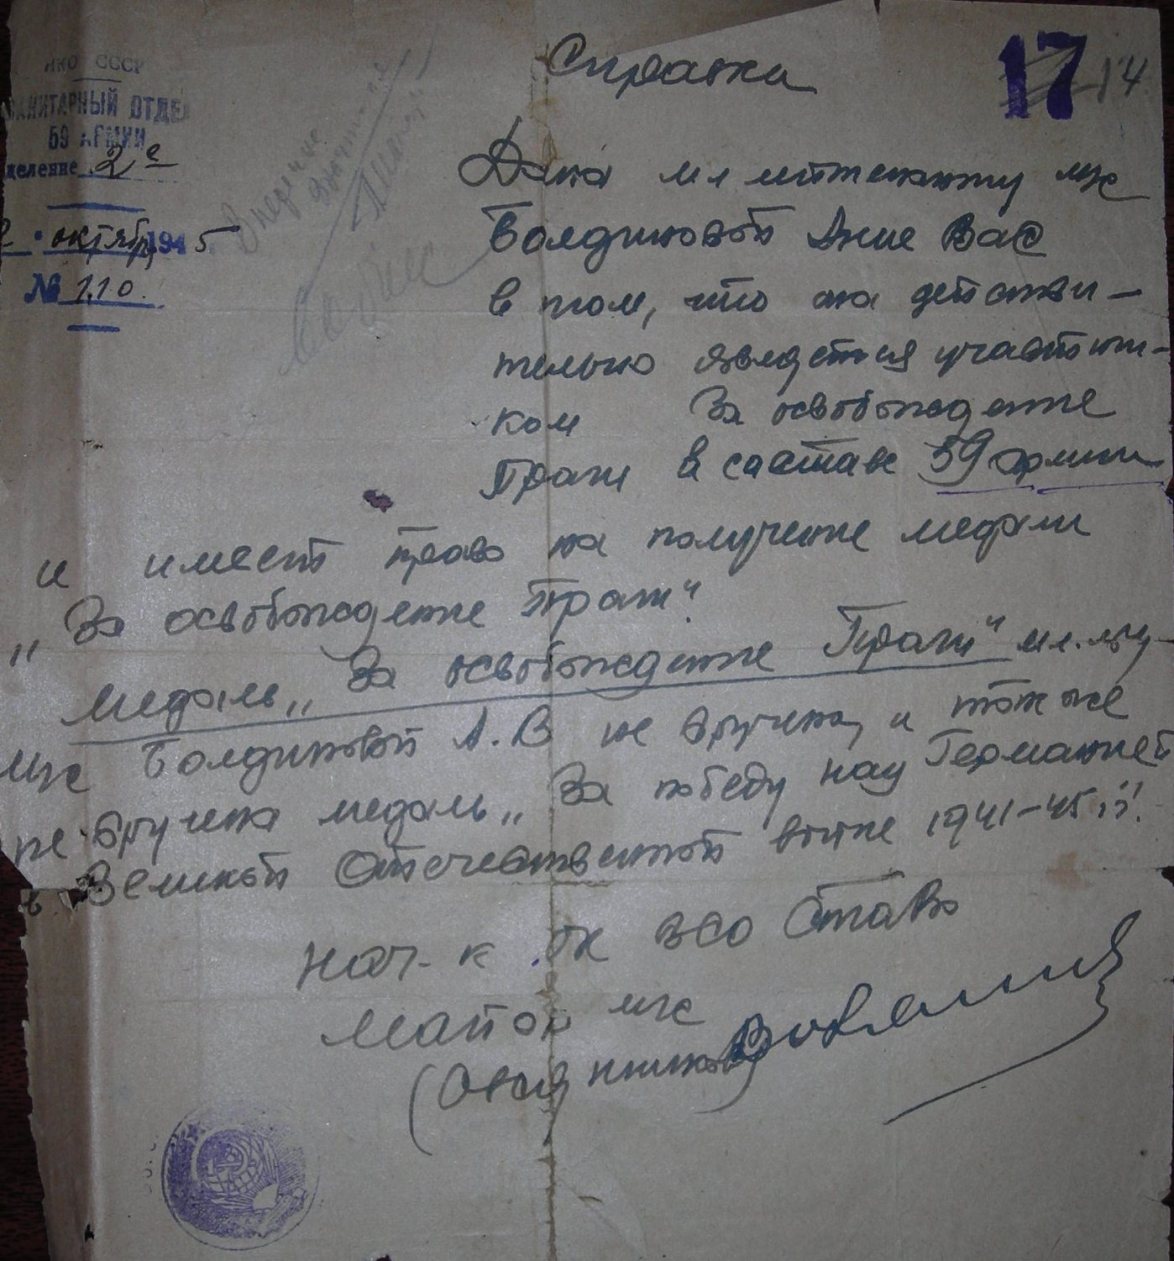 НКО СССР
САНИТАРНЫЙ ОТДЕЛ
59 АРМИИ
деление 2е
октября 1945
№ 110.
17 14
Справка
Дана мл лейтенанту м/с
Болдиновой Анне Вас
в том, что она действи-
тельно является участни-
ком За освобождение
Праги в составе 59 армии
и имеет право на получение медали
„За освобождение Праги"
медаль „За освобождение Праги" мл.
м/с Болдиновой А.В не вручена, и также
не вручена медаль „За победу над Германией
в Великой Отечественной войне 1941-45гг".
Нач-к ВСО
Майор м/с
(Овсянников)